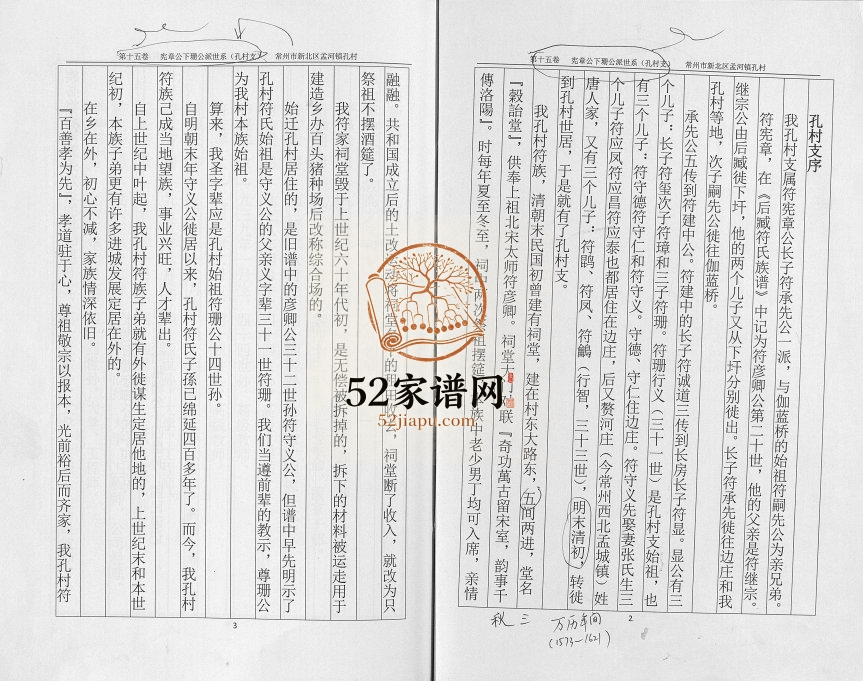 第十五卷 宪章公下珊公派世系（孔村支） 常州市新北区孟河镇孔村
孔村支序
我孔村支属符宪章公长子符承先公一派，与伽蓝桥的始祖符嗣先公为亲兄弟。
符宪章，在《后臧符氏族谱》中记为符彦卿公第二十世，他的父亲是符继宗。
继宗公由后臧徙下圩，他的两个儿子又从下圩分别徙出。长子符承先徙往边庄和我
孔村等地，次子嗣先公徙往伽蓝桥。
承先公五传到符建中公。符建中的长子符诚道三传到长房长子符显。显公有三
个儿子：长子符玺次子符璋和三子符珊。符珊行义（三十一世）是孔村支始祖，也
有三个儿子：符守德符守仁和符守义。守德、守仁住边庄。符守义先娶妻张氏生三
个儿子符应凤符应昌符应泰也都居住在边庄，后又赘河庄（今常州西北孟城镇）姓
唐人家，又有三个儿子：符鹍、符凤、符鸙（行智，三十三世），明末清初，转徙
到孔村世居，于是就有了孔村支。
我孔村符族，清朝末民国初曾建有祠堂，建在村东大路东，五间两进，堂名
『榖詒堂』，供奉上祖北宋太师符彦卿。祠堂大门 联『奇功萬古留宋室，韵事千
傳洛陽』。时每年夏至冬至，祠 两次 祖摆筵 族中老少男丁均可入席，亲情
2
秋 三 万历年间
(1573-1621)
第十五卷 宪章公下珊公派世系（孔村支） 常州市新北区孟河镇孔村
融融。共和国成立后的土改 动将祠堂 的 田 收公，祠堂断了收入，就改为只
祭祖不摆酒筵了。
我符家祠堂毁于上世纪六十年代初，是无偿被拆掉的，拆下的材料被运走用于
建造乡办百头猪种场后改称综合场的。
始迁孔村居住的，是旧谱中的彦卿公三十二世孙符守义公，但谱中早先明示了
孔村符氏始祖是守义公的父亲义字辈三十一世符珊。我们当遵前辈的教示，尊珊公
为我村本族始祖。
算来，我圣字辈应是孔村始祖符珊公十四世孙。
自明朝末年守义公徙居以来，孔村符氏子孫已绵延四百多年了。而今，我孔村
符族己成当地望族，事业兴旺，人才辈出。
自上世纪中叶起，我孔村符族子弟就有外徙谋生定居他地的，上世纪末和本世
纪初，本族子弟更有许多进城发展定居在外的。
在乡在外，初心不减，家族情深依旧。
『百善孝为先』，孝道驻于心，尊祖敬宗以报本，光前裕后而齐家，我孔村符
3
52家谱网
52jiapu.com